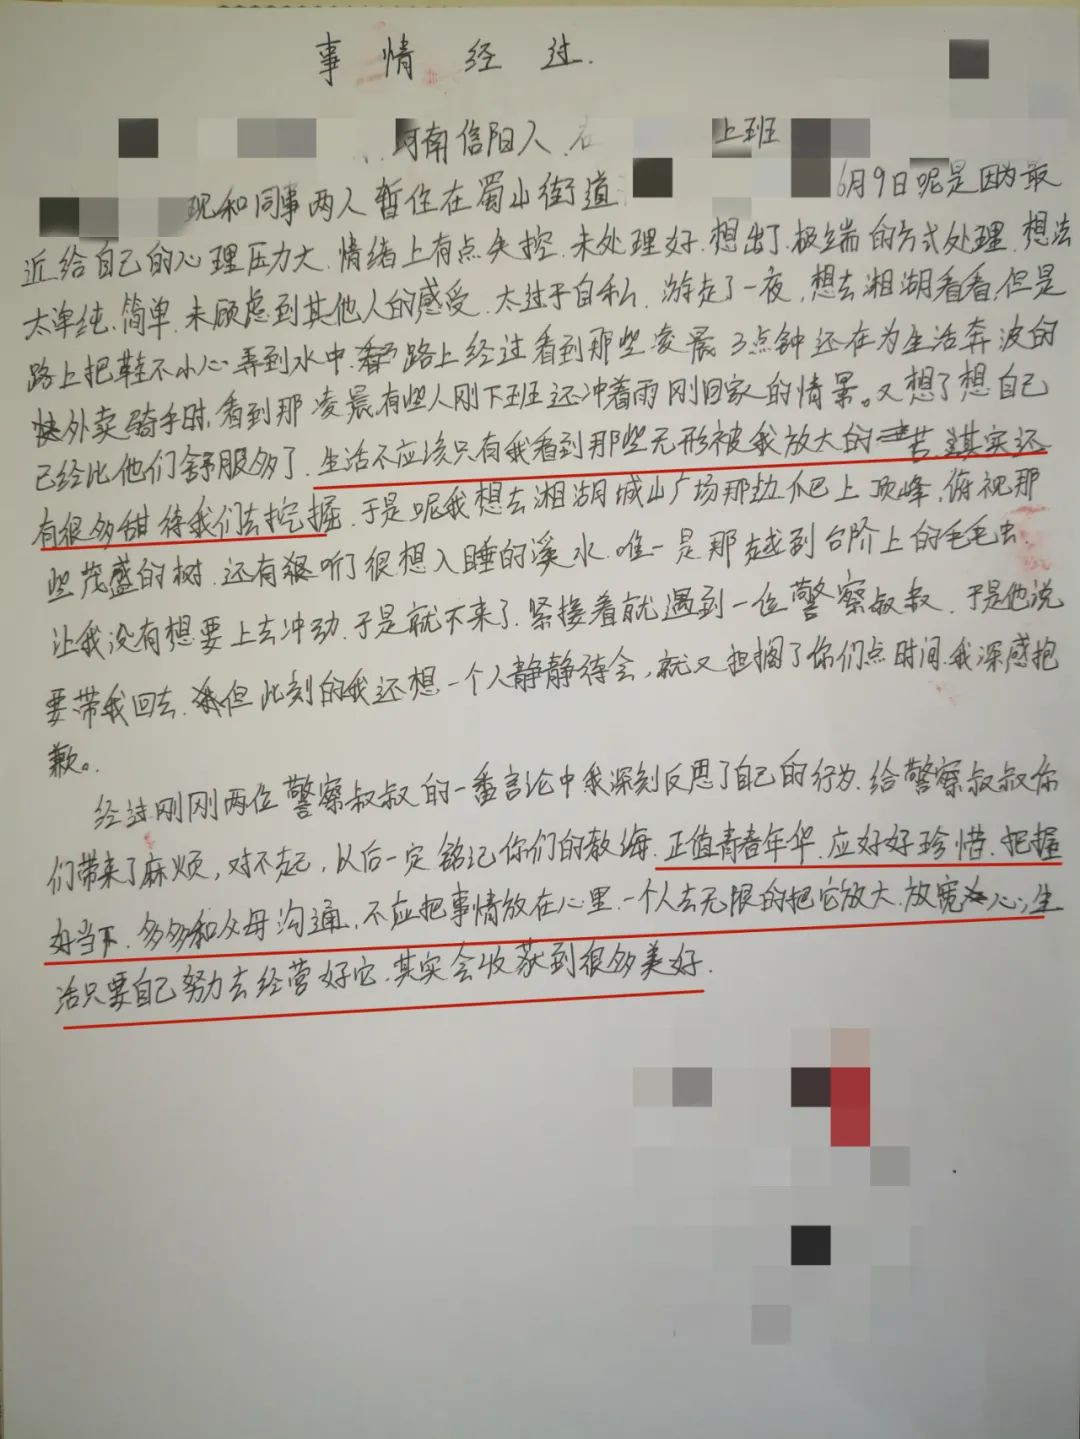 事情经过.
河南信阳人.在 上班
现和同事两人暂住在蜀山街道 6月9日呢是因为最
近给自己的心理压力大.情绪上有点失控.未处理好.想出了.极端的方式处理.想法
太单纯.简单.未顾虑到其他人的感受.太过于自私.游走了一夜,想去湘湖看看,但是
路上把鞋不小心弄到水中.路上经过看到那些凌晨3点钟还在为生活奔波的
外卖骑手时,看到那凌晨有些人刚下班还冲着雨刚回家的情景。又想了想自己
已经比他们舒服多了.生活不应该只有我看到那些无形被我放大的苦.其实还
有很多甜待我们去挖掘.于是呢我想去湘湖城山广场那边爬上顶峰,俯视那
些茂盛的树.还有听了很想入睡的溪水.唯一是那越到台阶上的毛毛虫.
让我没有想要上去冲动.于是就下来了.紧接着就遇到一位警察叔叔.于是他说
要带我回去.但此刻的我还想一个人静静待会,就又担搁了你们点时间.我深感抱
歉。.
经过刚刚两位警察叔叔的一番言论中我深刻反思了自己的行为.给警察叔叔你
们带来了麻烦,对不起,以后一定铭记你们的教诲.正值青春年华.应好好珍惜.把握
好当下.多多和父母沟通,不应把事情放在心里.一个人去无限的把它放大.放宽心,生
活只要自己努力去经营好它.其实会收获到很多美好.